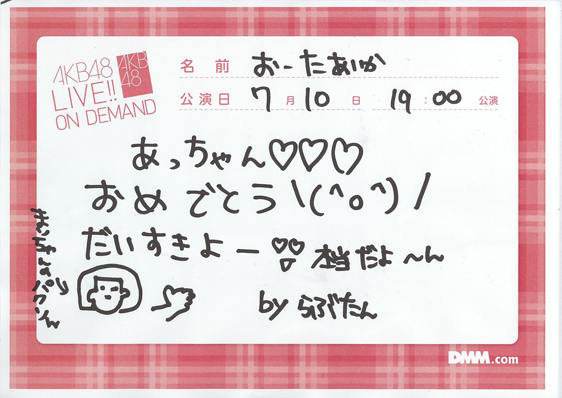 AKB48
LIVE!!
ON DEMAND
AKB
48
名前 おーたあいか
公演日 7月10日 19:00 公演
あっちゃん♡♡♡
おめでとう\(^o^)/
だいすきよー 本当だよ〜ん
by らぶたん
パクリ
DMM.com